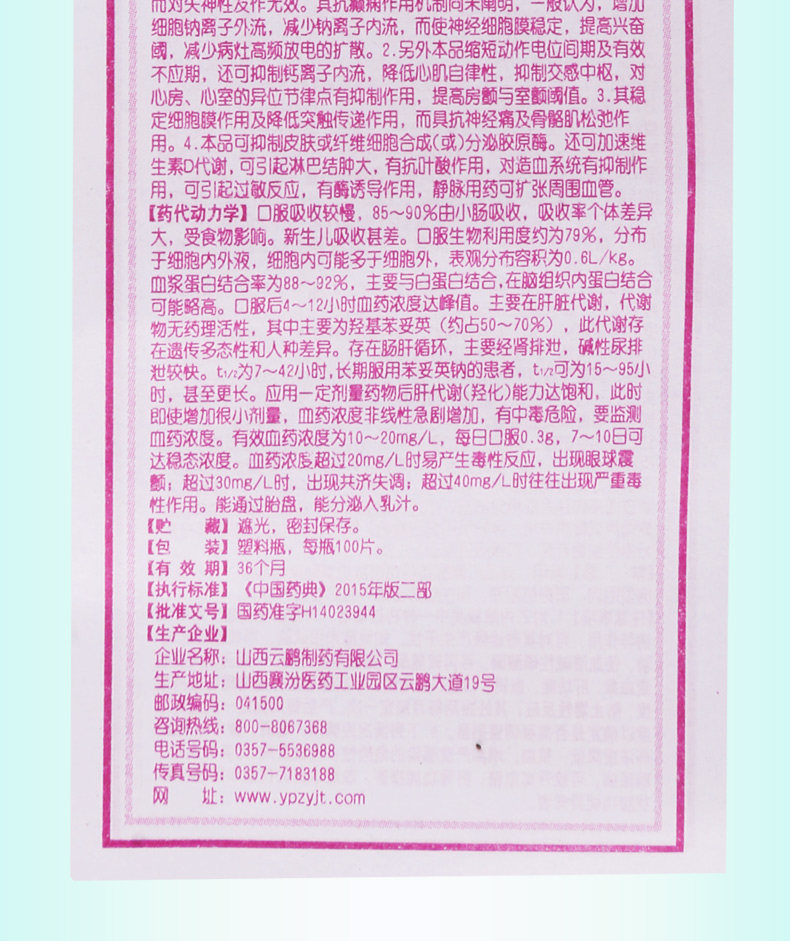 而对失神性发作无效。其抗癫痫作用机制尚未阐明，一般认为，增加
细胞钠离子外流，减少钠离子内流，而使神经细胞膜稳定，提高兴奋
阈，减少病灶高频放电的扩散。2.另外本品缩短动作电位间期及有效
不应期，还可抑制钙离子内流，降低心肌自律性，抑制交感中枢，对
心房、心室的异位节律点有抑制作用，提高房颤与室颤阈值。3.其稳
定细胞膜作用及降低突触传递作用，而具抗神经痛及骨骼肌松弛作
用。4.本品可抑制皮肤或纤维细胞合成(或)分泌胶原酶。还可加速维
生素D代谢，可引起淋巴结肿大，有抗叶酸作用，对造血系统有抑制作
用，可引起过敏反应，有酶诱导作用，静脉用药可扩张周围血管。
【药代动力学】口服吸收较慢，85～90%由小肠吸收，吸收率个体差异
大，受食物影响。新生儿吸收甚差。口服生物利用度约为79%，分布
于细胞内外液，细胞内可能多于细胞外，表观分布容积为0.6L/kg。
血浆蛋白结合率为88～92%，主要与白蛋白结合，在脑组织内蛋白结合
可能略高。口服后4～12小时血药浓度达峰值。主要在肝脏代谢，代谢
物无药理活性，其中主要为羟基苯妥英（约占50～70%），此代谢存
在遗传多态性和人种差异。存在肠肝循环，主要经肾排泄，碱性尿排
泄较快。t1/2为7～42小时，长期服用苯妥英钠的患者，t1/2可为15～95小
时，甚至更长。应用一定剂量药物后肝代谢(羟化)能力达饱和，此时
即使增加很小剂量，血药浓度非线性急剧增加，有中毒危险，要监测
血药浓度。有效血药浓度为10～20mg/L，每日口服0.3g，7～10日可
达稳态浓度。血药浓度超过20mg/L时易产生毒性反应，出现眼球震
颤；超过30mg/L时，出现共济失调；超过40mg/L时往往出现严重毒
性作用。能通过胎盘，能分泌入乳汁。
【贮 藏】遮光，密封保存。
【包 装】塑料瓶，每瓶100片。
【有 效 期】36个月
【执行标准】《中国药典》2015年版二部
【批准文号】国药准字H14023944
【生产企业】
企业名称：山西云鹏制药有限公司
生产地址：山西襄汾医药工业园区云鹏大道19号
邮政编码：041500
咨询热线：800-8067368
电话号码：0357-5536988
传真号码：0357-7183188
网 址：www.ypzyjt.com